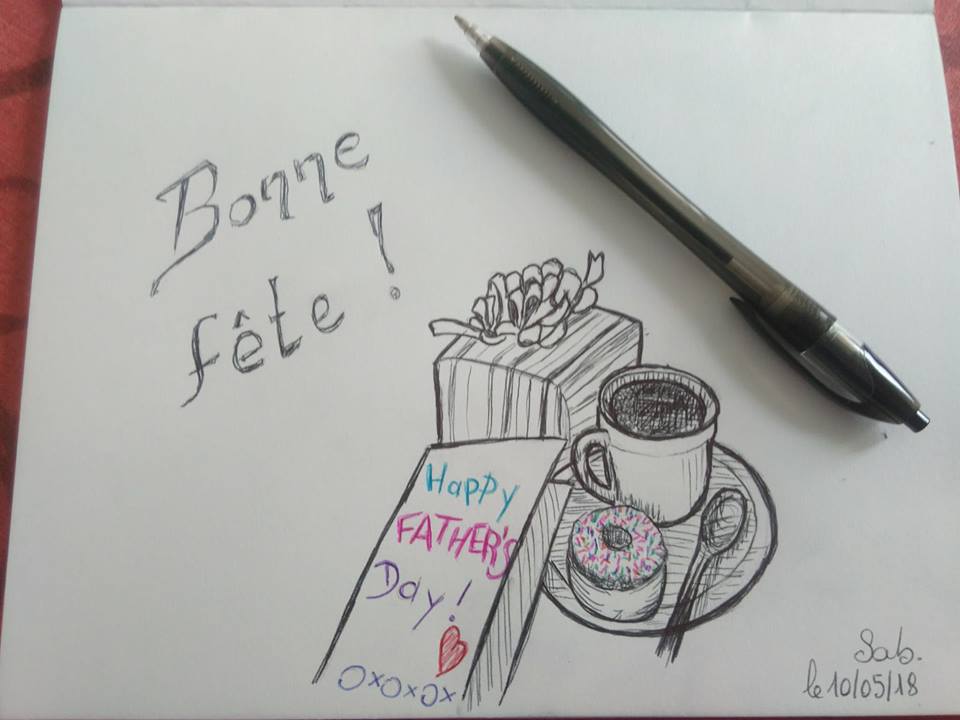 Bonne
fête !
Happy
FATHER'S
Day !
OxOxOx
Sab.
le 10/05/18